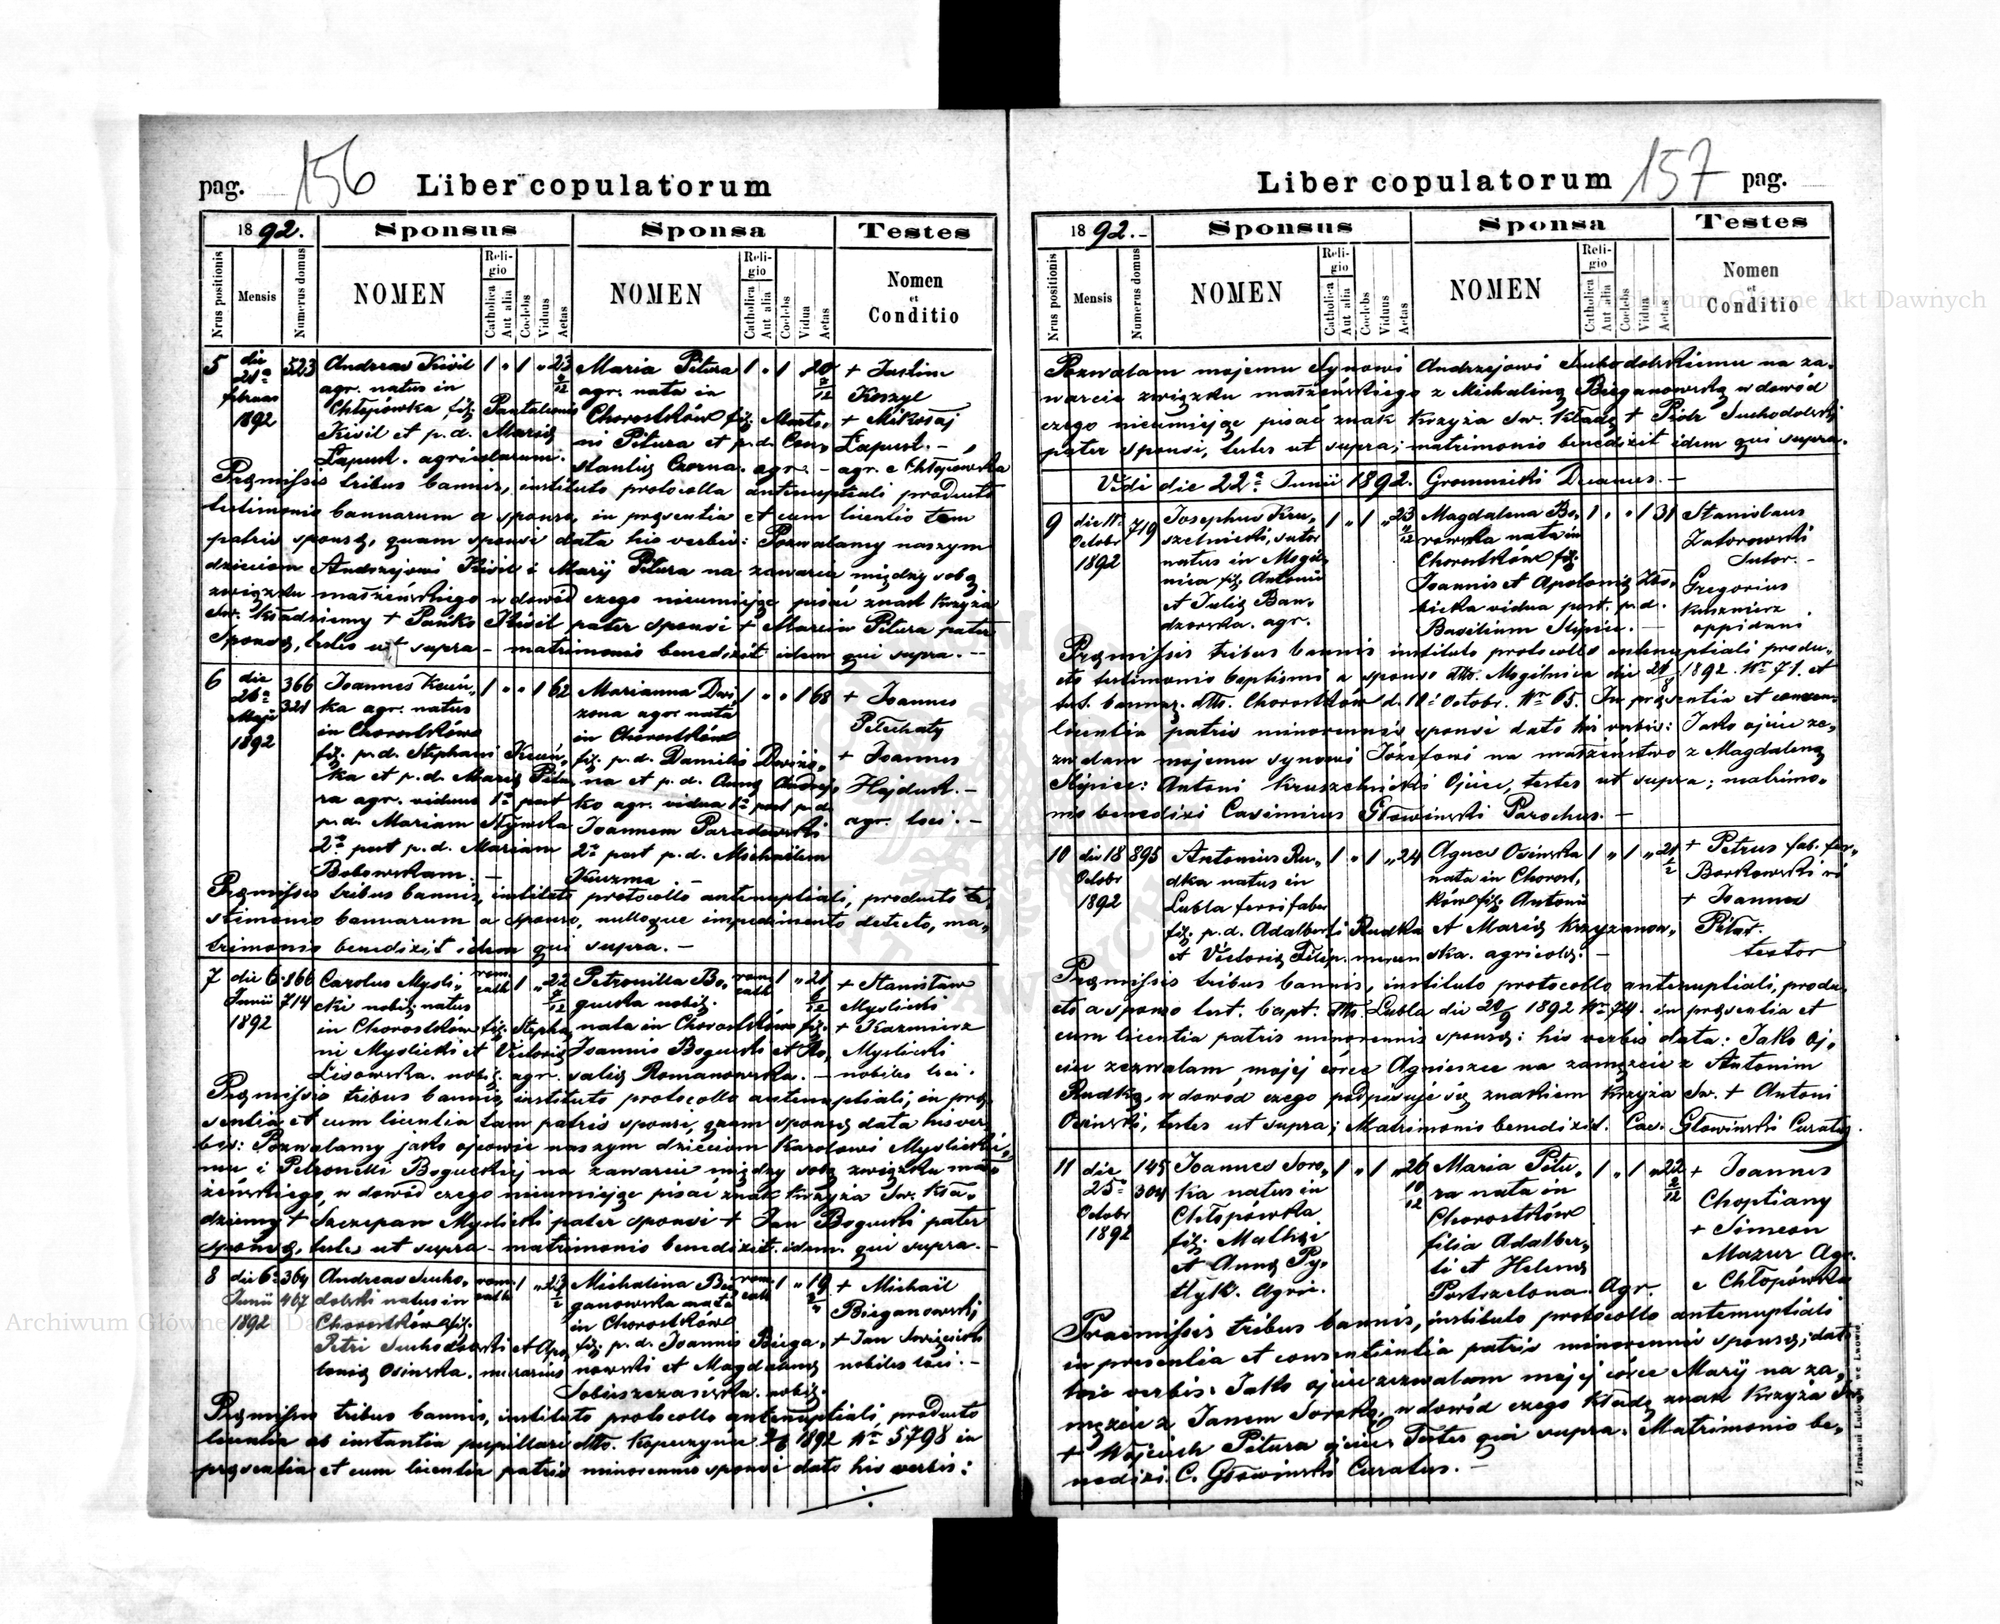 pag. 156 Liber copulatorum
1892. Sponsus Sponsa Testes
Nrus positionis Mensis Numerus domus NOMEN Religio Catholica Aut alia Coelebs Viduus Aetas NOMEN Religio Catholica Aut alia Coelebs Vidua Aetas Nomen et Conditio
5 die 21a februar 1892 523
Andreas Kivil
agr. natus in
Chłopówka fil. Pantaleonis
Kivil et p.d. Mariæ
Łapust. agricolarum.
1 " 1 " 23
Maria Pitura
agr. nata in
Chorostków fil. Marti-
ni Pitura et p.d. Con-
stantiæ Czorna. agr. –
1 " 1 " 20
+ Justin
Koszyl
+ Mikołaj
Łapust. –
agr. e Chłopówka
Præmissis tribus bannis, instituto protocollo antenuptiali producto
testimonio bannorum a sponso, in præsentia et cum licentia tam
patris sponsæ, quam sponsi data his verbis: Pozwalamy naszym
dzieciom Andrzejowi Kivil i Maryi Pitura na zawarcie między sobą
związku małżeńskiego w dowód czego nieumiejąc pisać znak krzyża
św. kładziemy + Pańko Kivil pater sponsi + Marcin Pitura pater
sponsæ, testes ut supra – matrimonio benedixit idem qui supra. –
6 die 26a Maji 1892 366 321
Joannes Kuń-
ka agr. natus
in Chorostków
fil. p.d. Stephani
ka et p.d. Mariæ Pitu-
ra agr. viduus 1o post
p.d. Mariam
2o post p.d. Mariam
Bobowskam. –
1 " " 1 62
Marianna Dwi
zona agr. nata
in Chorostków
fil. p.d. Danielis
na et p.d. Annæ Andrej-
ko agr. vidua 1o post p.d.
Joannem Paradowski
2o post p.d. Michaëlem
Kuzma –
1 " " 1 68
+ Joannes
Petechaty
+ Joannes
Hajduk. –
agr. loci. –
Præmissis tribus bannis, instituto protocollo antenuptiali, producto te-
stimonio bannorum a sponso, nulloque impedimento detecto, ma-
trimonio benedixit idem qui supra. –
7 die 6 Junii 1892 866 714
Carolus Mysli-
cki nobil. natus
in Chorostków fil. Stepha-
ni Myslicki et Victoriæ
Lisowska. nobil. agr.
rom. cath 1 " 22
Petronilla Bo-
gucka nobil.
nata in Chorostków fil.
Joannis Bogucki et Ro-
saliæ Romanowska. –
rom. cath 1 " 21
+ Stanisław
Myslicki
+ Kazimierz
Myslicki
nobiles loci.
Præmissis tribus bannis, instituto protocollo antenuptiali, in præ-
sentia et cum licentia tam patris sponsi, quam sponsæ data his ver-
bis: Pozwalamy jako ojcowie naszym dzieciom Karolowi Myslickie-
mu i Petroneli Boguckiej na zawarcie między sobą związku mał-
żeńskiego, w dowód czego nieumiejąc pisać znak krzyża św. kła-
dziemy + Szczepan Myslicki pater sponsi + Jan Bogucki pater
sponsæ, testes ut supra – matrimonio benedixit idem qui supra. –
8 die 6a Junii 1892 364 467
Andreas Sucho-
dolski natus in
Chorostków fil.
Petri Suchodolski et Apo-
loniæ Osinska. murarius
rom. cath 1 " 23
Michalina Bie
ganowska nata
in Chorostków
fil. p.d. Joannis Biega-
nowski et Magdalenæ
nobil.
rom. cath 1 " 19
+ Michaël
Bieganowski
+ Jan
nobiles loci. –
Præmissis tribus bannis, instituto protocollo antenuptiali, producto
licentia ab instantia pupillari dtto. Kopeczynce 1892 No 5798 in
præsentia et cum licentia patris minorennis sponsi data his verbis:
Liber copulatorum 157 pag.
1892. – Sponsus Sponsa Testes
Nrus positionis Mensis Numerus domus NOMEN Religio Catholica Aut alia Coelebs Viduus Aetas NOMEN Religio Catholica Aut alia Coelebs Vidua Aetas Nomen et Conditio
Pozwalam mojemu Synowi Andrzejowi Suchodolskiemu na za-
warcie związku małżeńskiego z Michaliną Bieganowską w dowód
czego nieumiejąc pisać znak krzyża św. kładę + Piotr Suchodolski
pater sponsi, testes ut supra; matrimonio benedixit idem qui supra.
Vidi die 22a Junii 1892. Gromnicki Decanus. –
9 die 11 Octobr 1892 719
Josephus Kru-
szelnicki, sutor
natus in Mogil-
nica fil. Antonii
et Juliæ Ban-
dzorska. agr.
1 " 1 " 23
Magdalena Bo-
rowska nata in
Chorostków fil.
Joannis et Apoloniæ
vidua post. p.d.
Basilium
1 " " 1 31
Stanislaus
Zatorowski
Sutor. –
Gregorius
Kusznierz
oppidani
Præmissis tribus bannis instituto protocollo antenuptiali produ-
cto testimonio baptismi a sponso dtto. Mogilnica die 1892. No 71. et
test. bannor. dtto. Chorostków d. 10 Octobr. No 65. In præsentia et consens
licentia patris minorennis sponsi dato his verbis: Jako ojciec ze-
zwalam mojemu synowi Józefowi na małżeństwo z Magdaleną
Antoni Kruszelnicki Ojciec, testes ut supra; matrimo-
nio benedixi Casimirus Głowinski Parochus. –
10 die 18 Octobr 1892 895
Antonius Ru-
dka natus in
Lubla ferrifaber
fil. p.d. Adalberti Rudka
et Victoriæ
1 " 1 " 24
Agnes Osinska
nata in Chorost-
ków fil. Antonii
et Mariæ Krzyzanow-
ska. agricolæ. –
1 " 1 " 21
+ Petrus fab. fer-
Borkowski
+ Joannes
Pitar.
textor
Præmissis tribus bannis, instituto protocollo antenuptiali, produ-
cto a sponso test. bapt. dtto. Lubla die 20/9 1892 No 74. in præsentia et
cum licentia patris minorennis sponsæ: his verbis data: Jako oj-
ciec zezwalam, mojej córce Agnieszce na zamęście z Antonim
Rudką, w dowód czego podpisuję się znakiem krzyża św. + Antoni
Osinski, testes ut supra; Matrimonio benedixit. Cas. Głowinski Curatus.
11 die 25a Octobr 1892 145 304
Joannes Soro-
ka natus in
Chłopówka
fil. Mathæi
et Annæ Py-
tlyk. Agric.
1 " 1 " 26 10/12
Maria Pitu-
ra nata in
Chorostków
filia Adalber-
ti et Helenæ
Postrzelona. Agr.
1 " 1 " 22
+ Joannes
Choptiany
+ Simeon
Mazur Agr.
e Chłopówka
Praemissis tribus bannis, instituto protocollo antenuptiali
in presentia et consentientia patris minorennis sponsæ, dato
his verbis: Jako ojciec zezwalam mojej córce Maryi na za-
mężcie z Janem Soroką; w dowód czego kładę znak krzyża św.
+ Wojciech Pitura ojciec. Testes qui supra. Matrimonio be-
nedixi. C. Głowinski Curatus. –
Z Drukarni Ludowej we Lwowie.
Archiwum Główne Akt Dawnych
Archiwum Główne Akt Dawnych